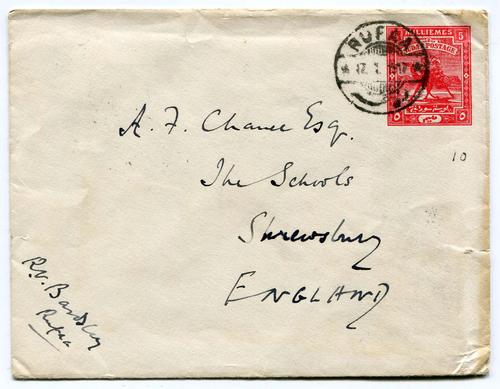 RUFAA
17.1.17
5 MILLIEMES 5
POSTAGE
A. F. Chance Esq.
The Schools
Shrewsbury
ENGLAND
10
R.N. Bardsley
Rufaa